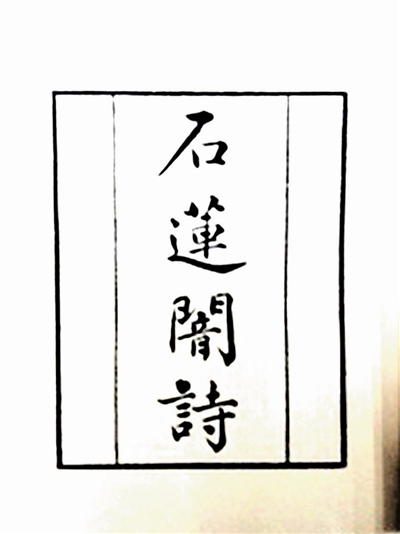 石蓮闇詩